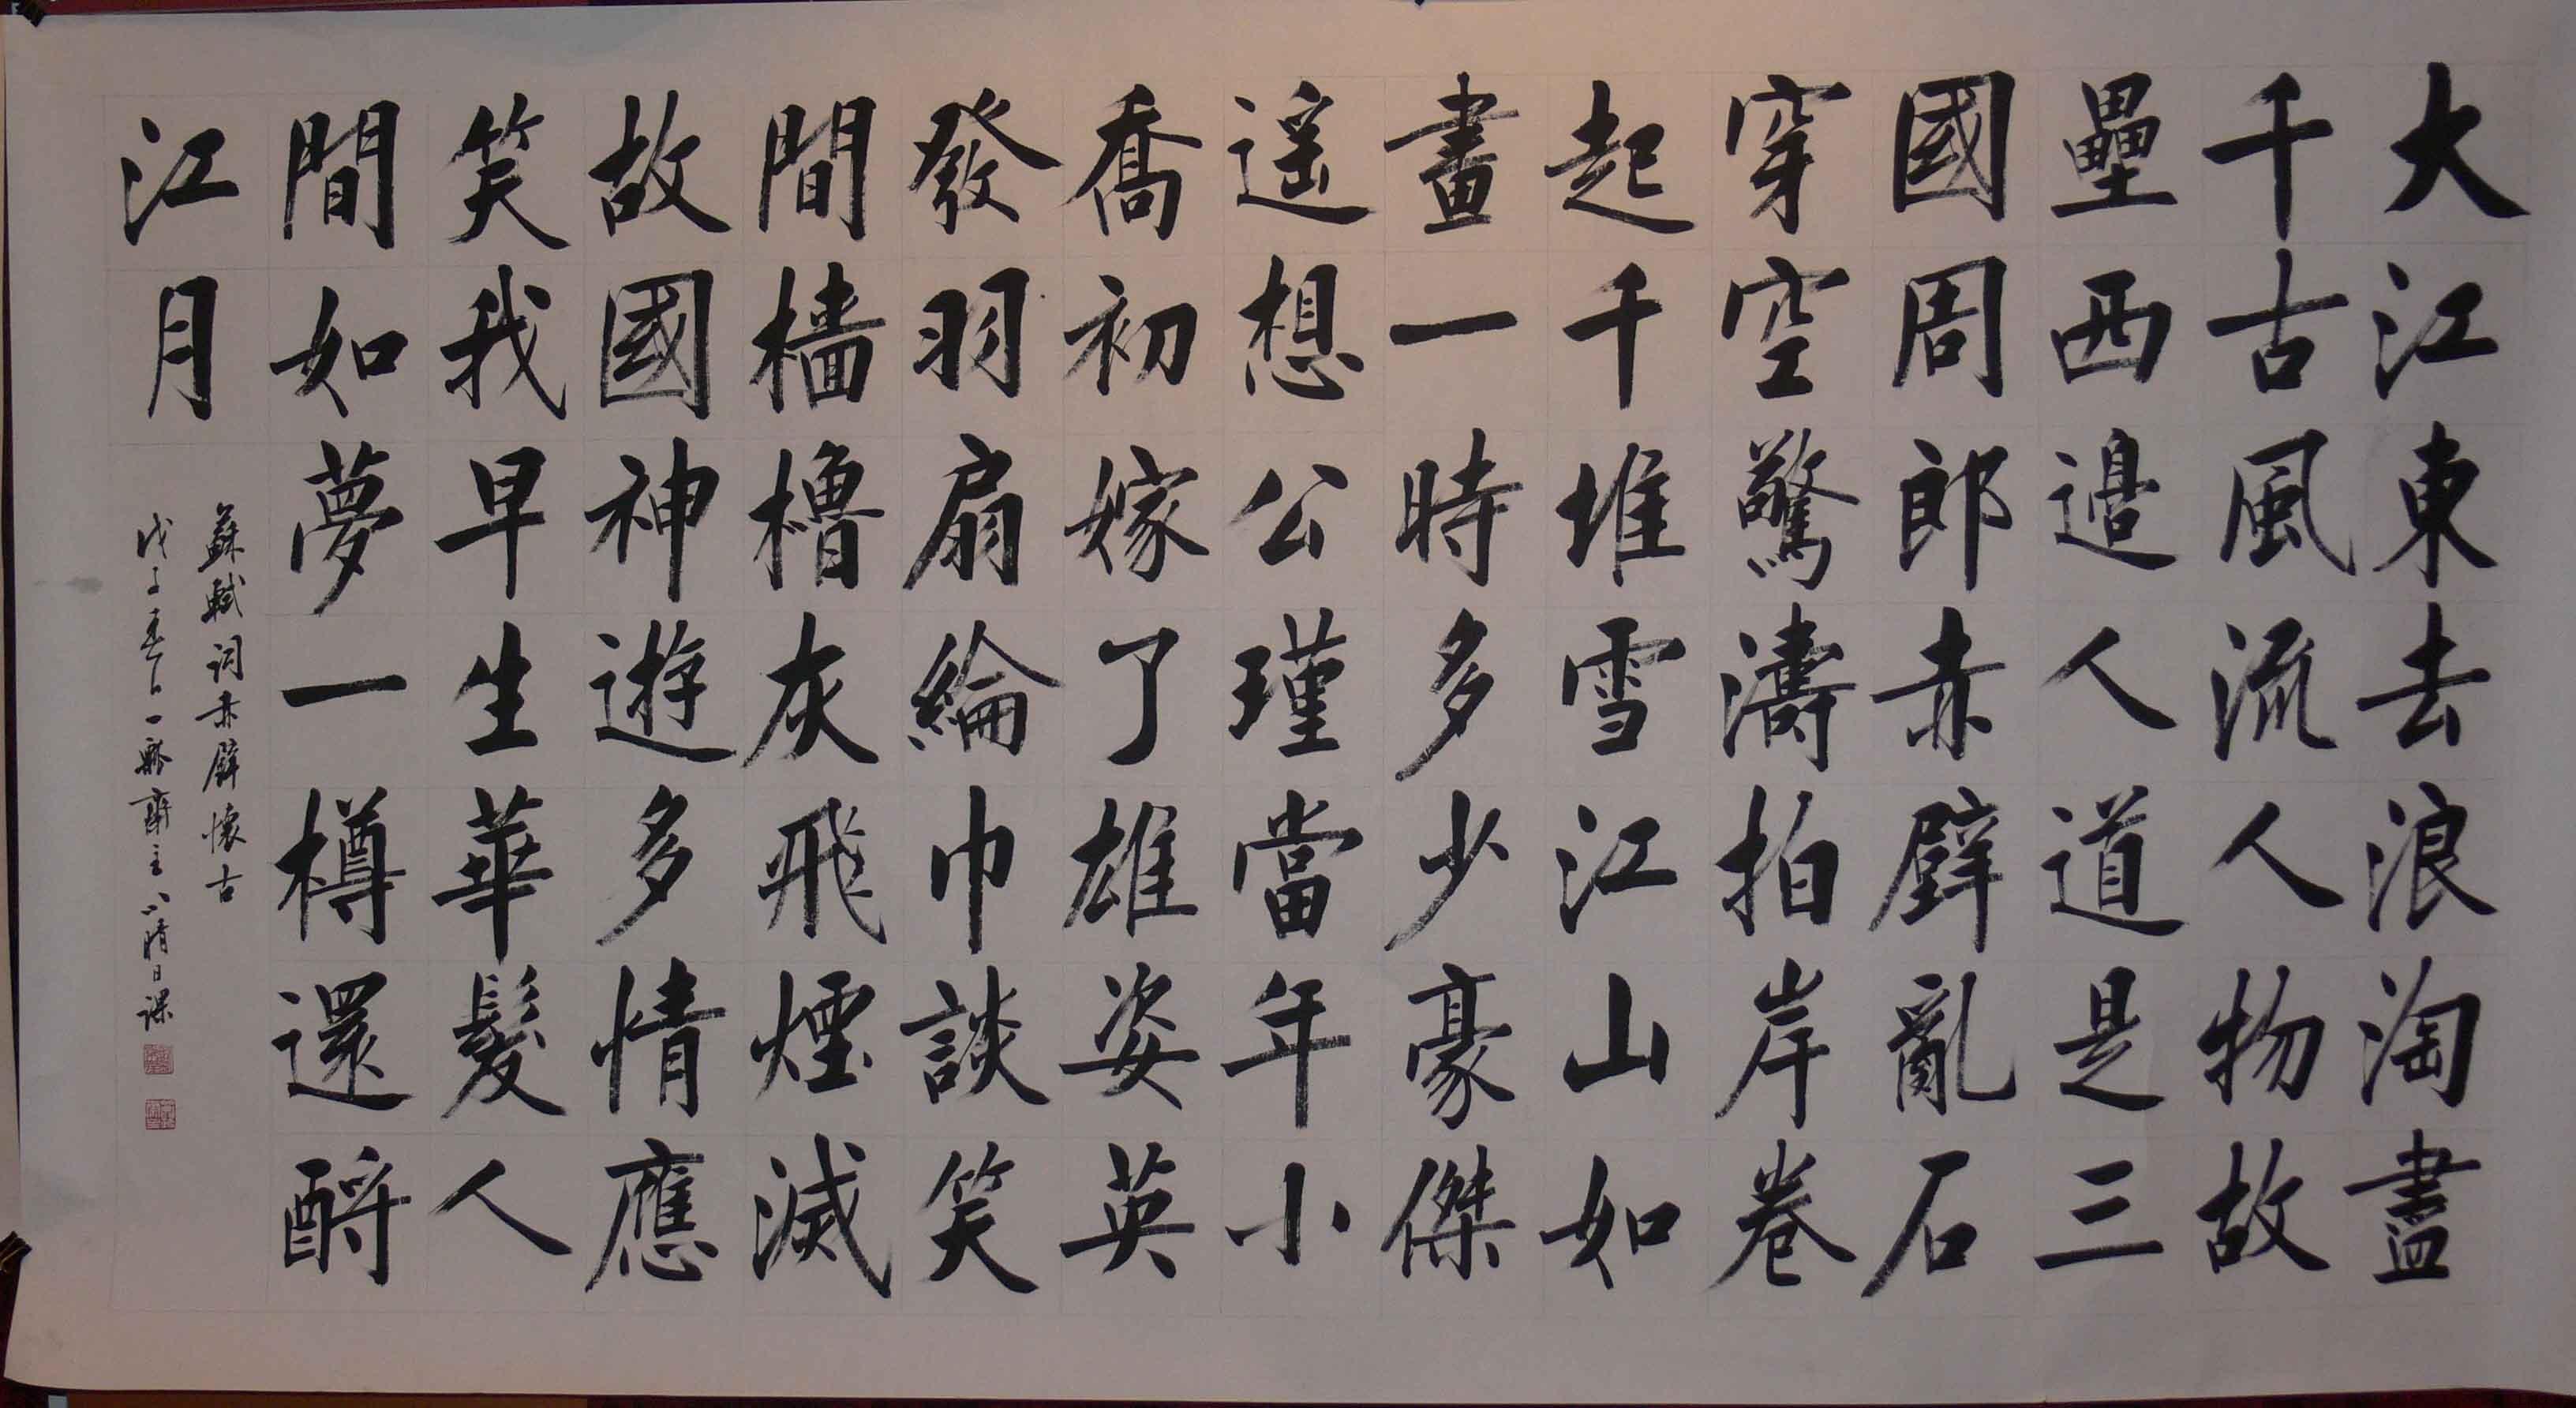 大江東去浪淘盡
千古風流人物故
壘西邊人道是三
國周郎赤壁亂石
穿空驚濤拍岸卷
起千堆雪江山如
畫一時多少豪傑
遥想公瑾當年小
喬初嫁了雄姿英
發羽扇綸巾談笑
間檣櫓灰飛煙滅
故國神遊多情應
笑我早生華髮人
間如夢一樽還酹
江月
蘇軾詞赤壁懷古
戊子